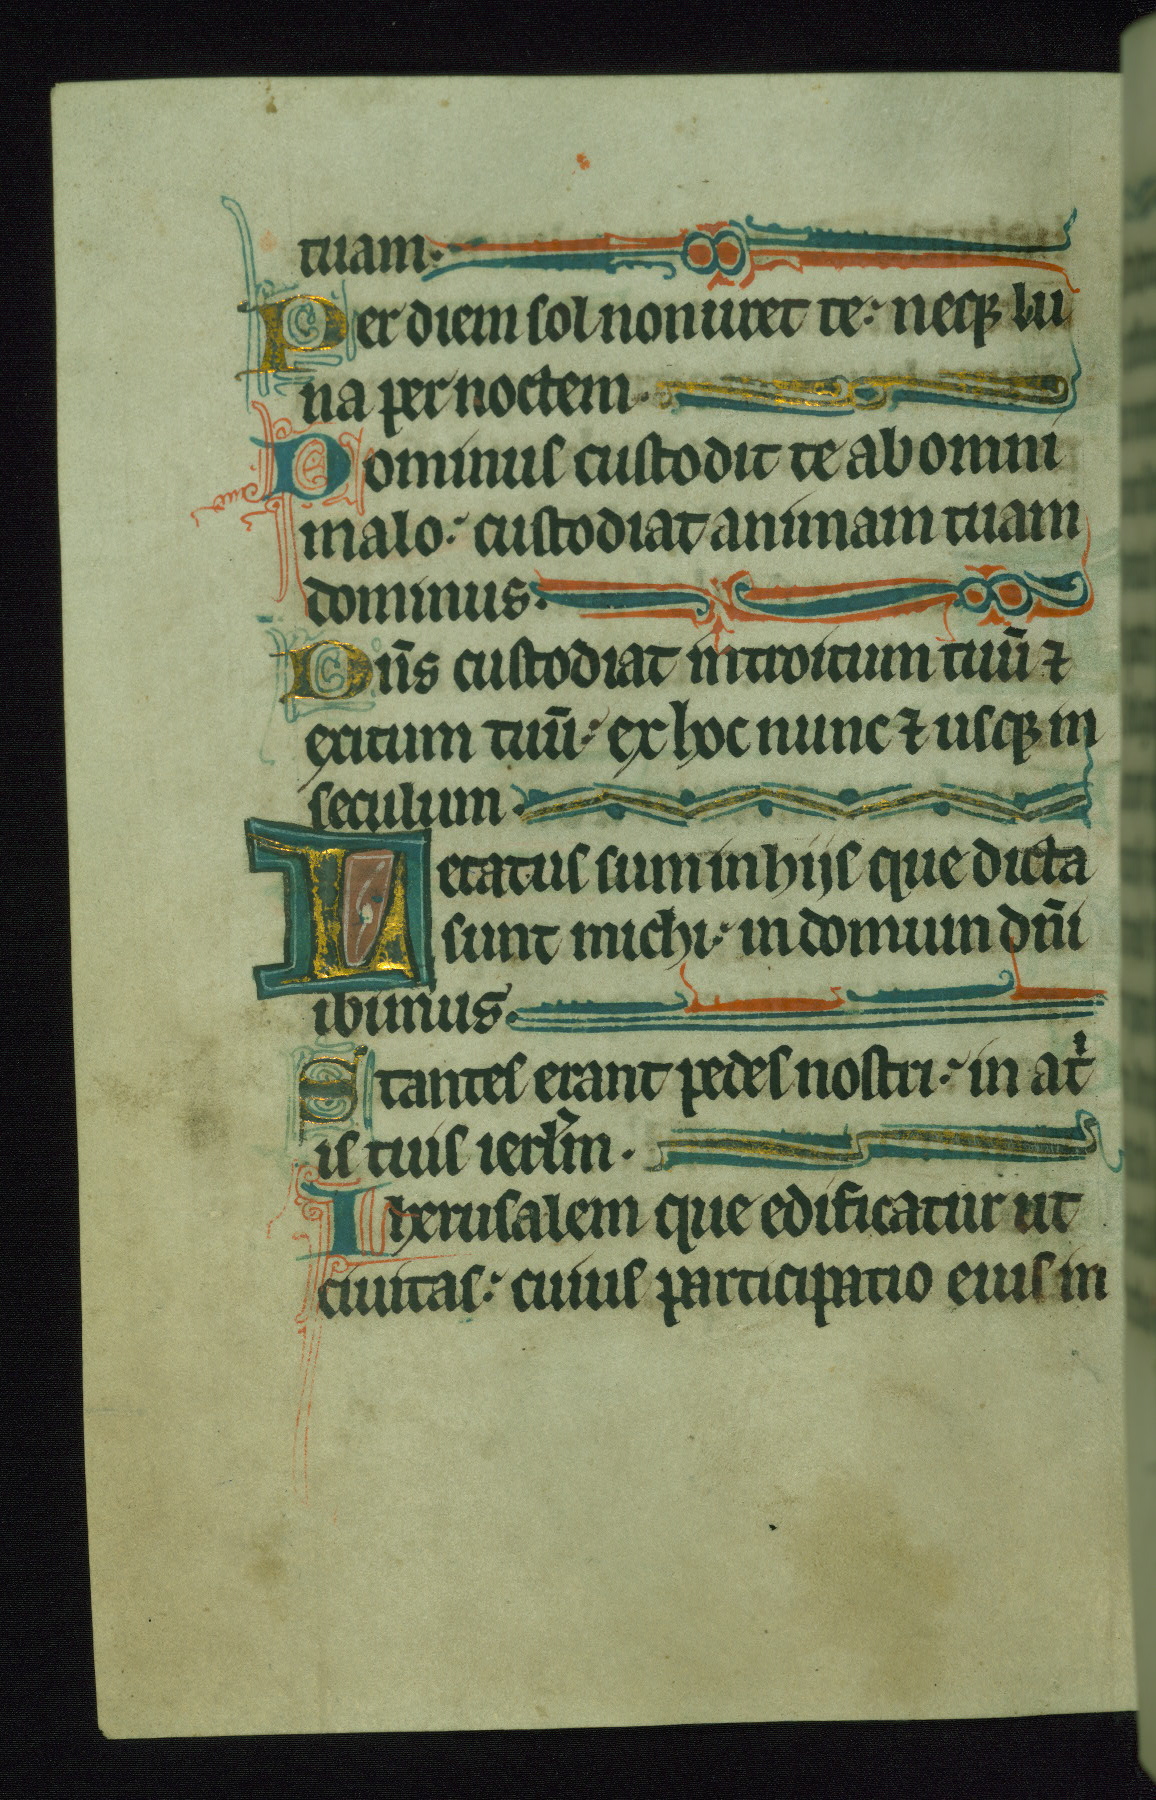 tuam.
Per diem sol non uret te: neqꝫ lu
na per noctem.
Dominus custodit te ab omni
malo: custodiat animam tuam
dominus.
Dn̄s custodiat introitum tuū ⁊
exitum tuū: ex hoc nunc ⁊ usqꝫ in
seculum.
Letatus sum in hijs que dicta
sunt michi: in domum dn̄i
ibimus.
Stantes erant pedes nostri: in atⁱ
is tuis ierl̄m.
Iherusalem que edificatur ut
ciuitas: cuius participatio eius in